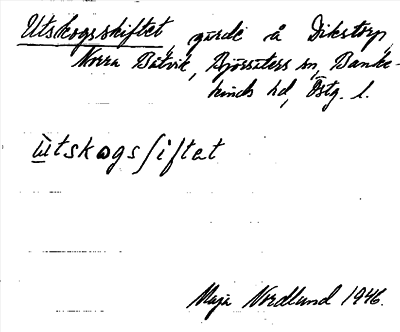 Utskogsskiftet, gärde å Dikstorp,
Norra Båtvik, Björsäters sn, Banke-
kinds hd, Östg. l.
ùtskogsʃiftet
Maja Nordlund 1946.